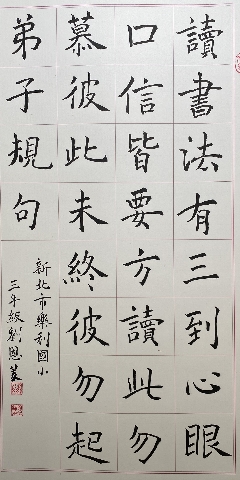 讀書法有三到心眼
口信皆要方讀此勿
慕彼此未終彼勿起
弟子規句
新北市樂利國小
三年級劉恩